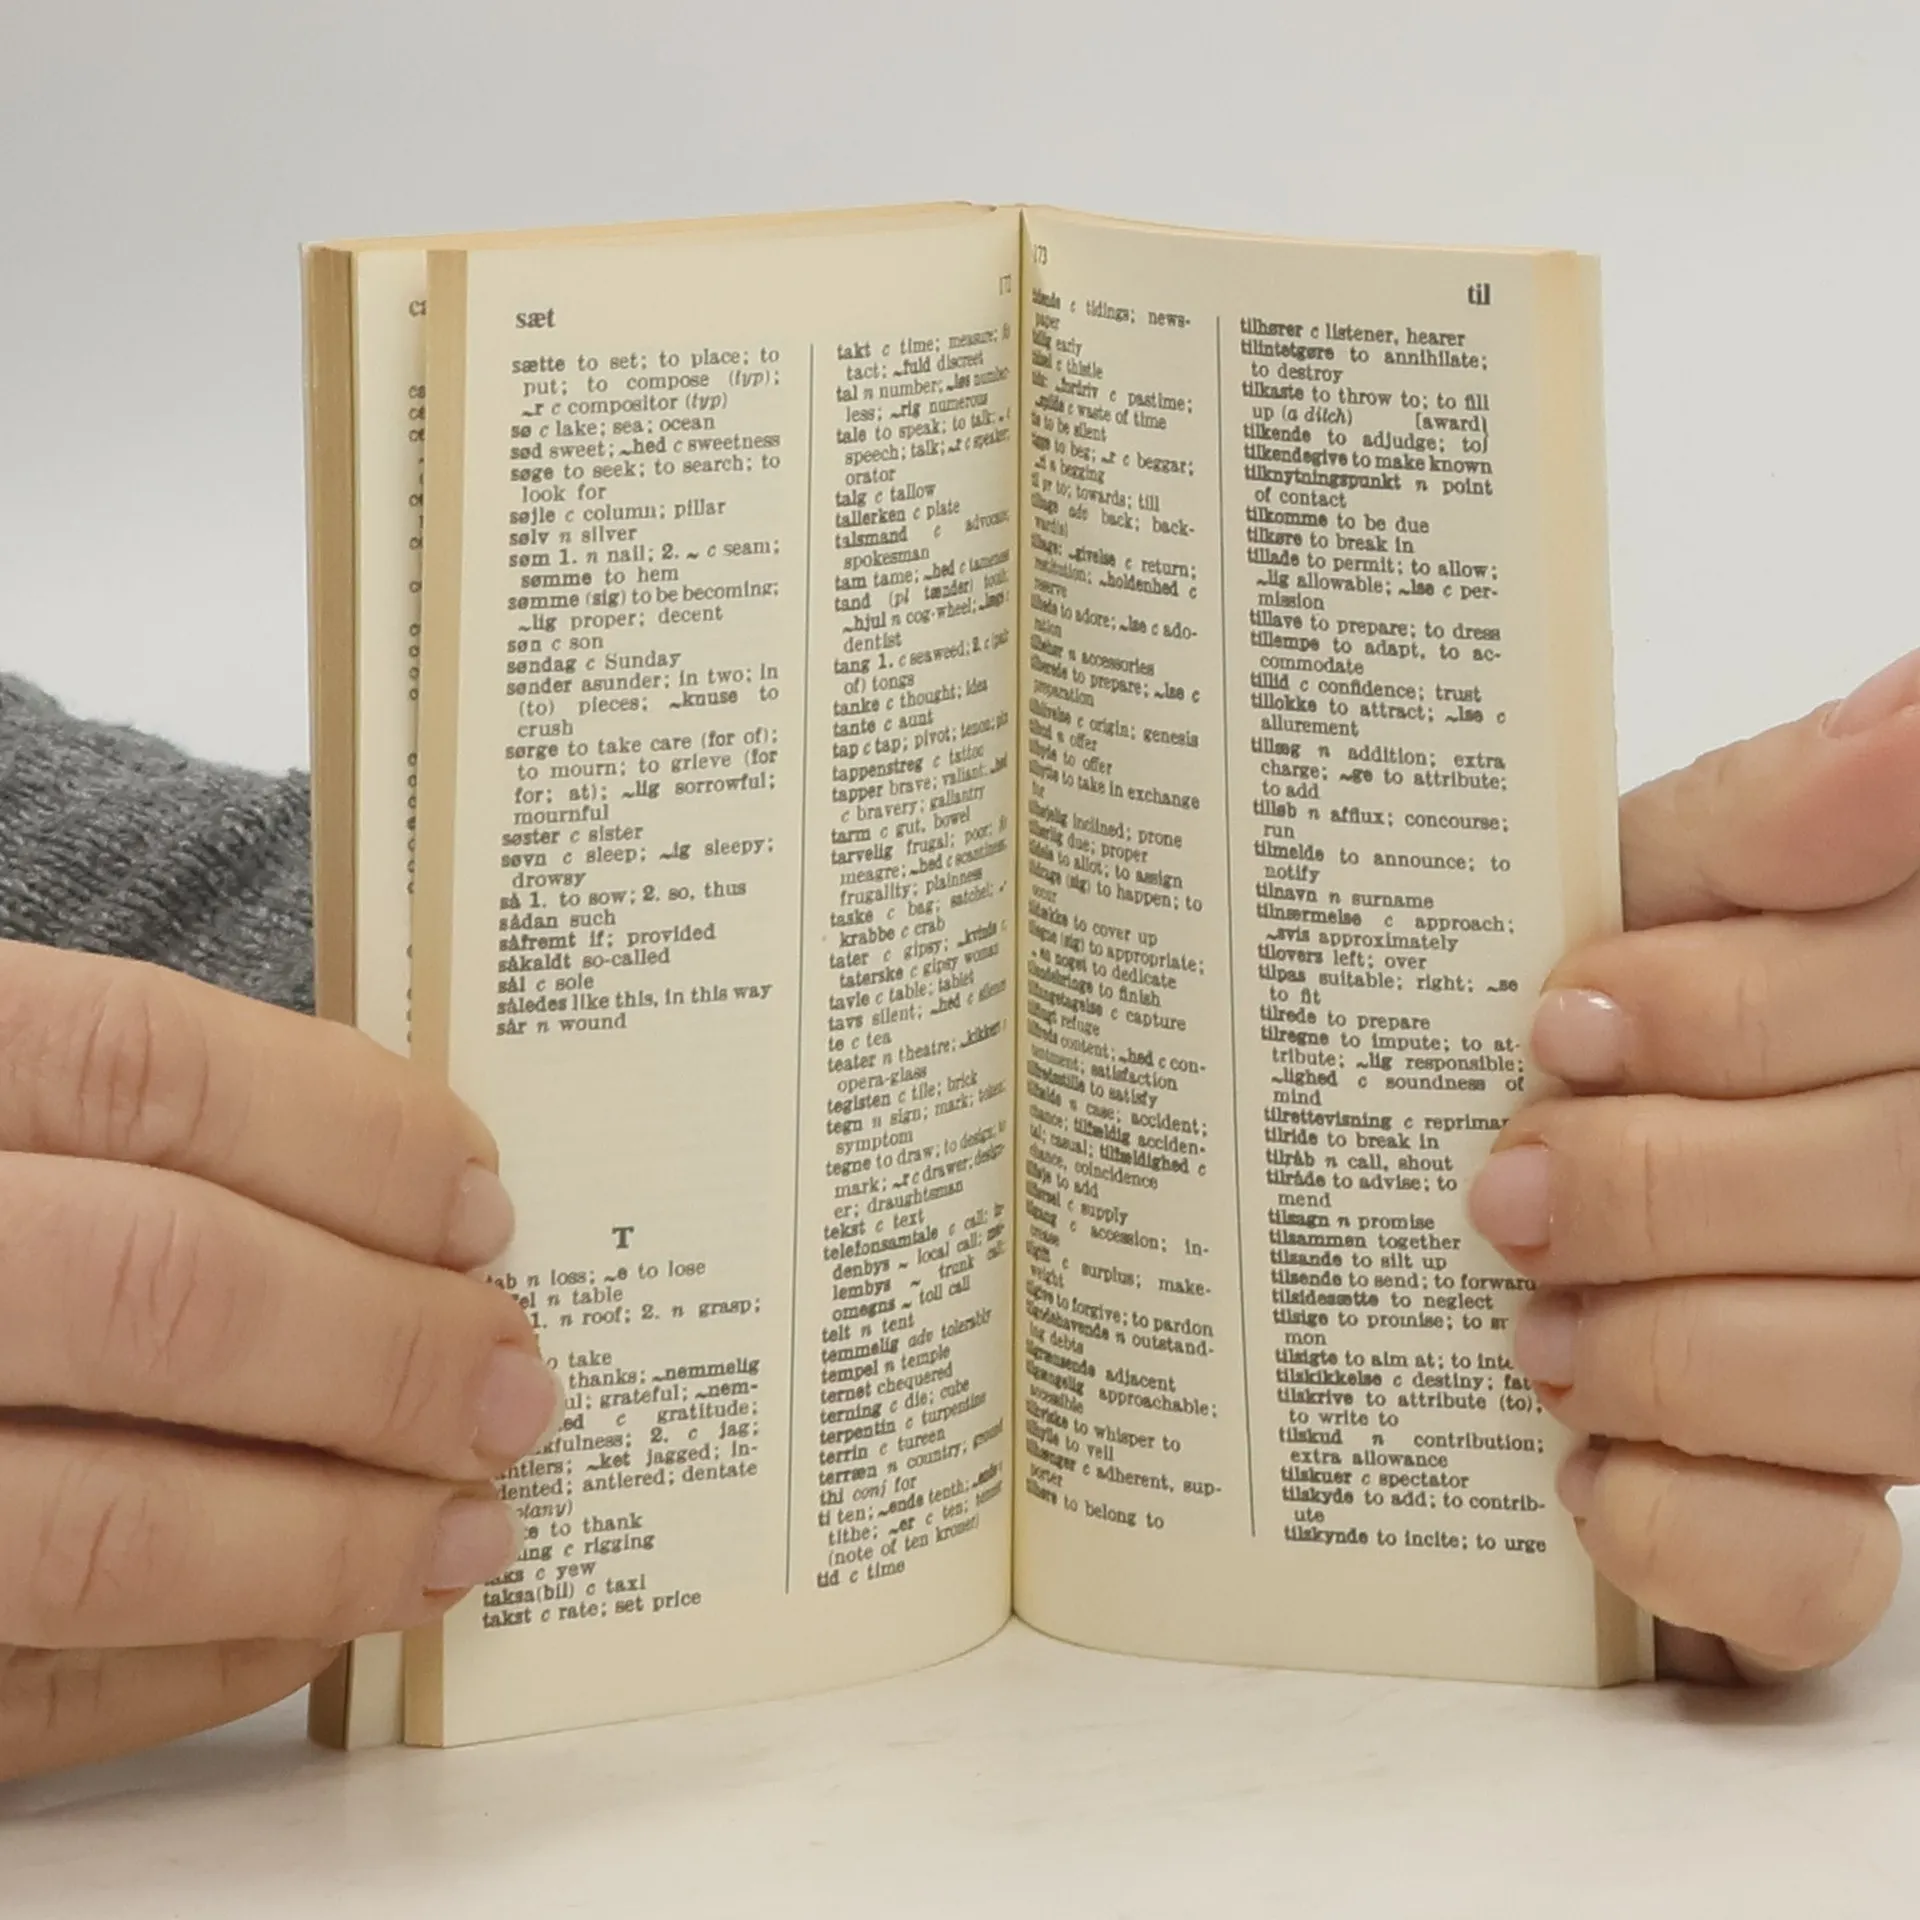 sæt
sætte to set; to place; to
put; to compose (typ);
~r c compositor (typ)
sø c lake; sea; ocean
sød sweet; ~hed c sweetness
søge to seek; to search; to
look for
søjle c column; pillar
sølv n silver
søm 1. n nail; 2. ~ c seam;
sømme to hem
sømme (sig) to be becoming;
~lig proper; decent
søn c son
søndag c Sunday
sønder asunder; in two; in
(to) pieces; ~knuse to
crush
sørge to take care (for of);
to mourn; to grieve (for
for; at); ~lig sorrowful;
mournful
søster c sister
søvn c sleep; ~ig sleepy;
drowsy
så 1. to sow; 2. so, thus
sådan such
såfremt if; provided
såkaldt so-called
sål c sole
således like this, in this way
sår n wound
T
n loss; ~e to lose
n table
1. n roof; 2. n grasp;
take
thanks; ~nemmelig
grateful; ~nem-
c gratitude;
2. c jag;
~ket jagged; in-
dented; antlered; dentate
to thank
c rigging
c yew
taksa(bil) c taxi
takst c rate; set price
takt c time; measure;
tact; ~fuld discreet
tal n number; ~løs number-
less; ~rig numerous
tale to speak; to talk;
speech; talk; ~r c speaker;
orator
talg c tallow
tallerken c plate
talsmand c advocate;
spokesman
tam tame; ~hed c tameness
tand (pl tænder) tooth;
~hjul n cog-wheel; ~læge
dentist
tang 1. c seaweed; 2. c (pair
of) tongs
tanke c thought; idea
tante c aunt
tap c tap; pivot; tenon;
tappenstreg c tattoo
tapper brave; valiant;
c bravery; gallantry
tarm c gut, bowel
tarvelig frugal; poor;
meagre; ~hed c scantiness;
frugality; plainness
taske c bag; satchel;
krabbe c crab
tater c gipsy; ~kvinde c,
taterske c gipsy woman
tavle c table; tablet
tavs silent; ~hed c silence
te c tea
teater n theatre; ~kikkert
opera-glass
teglsten c tile; brick
tegn n sign; mark; token;
symptom
tegne to draw; to design; to
mark; ~r c drawer; design-
er; draughtsman
tekst c text
telefonsamtale c call;
denbys ~ local call;
lembys ~ trunk call;
omegns ~ toll call
telt n tent
temmelig adv tolerably
tempel n temple
ternet chequered
terning c die; cube
terpentin c turpentine
terrin c tureen
terræn n country; ground
thi conj for
ti ten; ~ende tenth;
tithe; ~er c ten; tenner
(note of ten kroner)
tid c time
173
c tidings; news-
paper
early
c thistle
~fordriv c pastime;
~spilde c waste of time
to be silent
to beg; ~r c beggar;
begging
pr to; towards; till
adv back; back-
ward(s)
~givelse c return;
restitution; ~holdenhed c
reserve
to adore; ~lse c ado-
ration
n accessories
to prepare; ~lse c
preparation
c origin; genesis
n offer
to offer
to take in exchange
for
inclined; prone
due; proper
to allot; to assign
(sig) to happen; to
occur
to cover up
(sig) to appropriate;
to dedicate
to finish
c capture
refuge
content; ~hed c con-
tentment; satisfaction
to satisfy
n case; accident;
chance; tilfældig acciden-
tal; casual; tilfældighed c
chance, coincidence
to add
c supply
c accession; in-
crease
c surplus; make-
weight
to forgive; to pardon
n outstand-
ing debts
adjacent
approachable;
accessible
to whisper to
to veil
c adherent, sup-
porter
to belong to
til
tilhører c listener, hearer
tilintetgøre to annihilate;
to destroy
tilkaste to throw to; to fill
up (a ditch) [award]
tilkende to adjudge; to
tilkendegive to make known
tilknytningspunkt n point
of contact
tilkomme to be due
tilkøre to break in
tillade to permit; to allow;
~lig allowable; ~lse c per-
mission
tillave to prepare; to dress
tillempe to adapt, to ac-
commodate
tillid c confidence; trust
tillokke to attract; ~lse c
allurement
tillæg n addition; extra
charge; ~ge to attribute;
to add
tilløb n afflux; concourse;
run
tilmelde to announce; to
notify
tilnavn n surname
tilnærmelse c approach;
~svis approximately
tilovers left; over
tilpas suitable; right; ~se
to fit
tilrede to prepare
tilregne to impute; to at-
tribute; ~lig responsible;
~lighed c soundness of
mind
tilrettevisning c
tilride to break in
tilråb n call, shout
tilråde to advise; to
mend
tilsagn n promise
tilsammen together
tilsande to silt up
tilsende to send; to forward
tilsidesætte to neglect
tilsige to promise; to
mon
tilsigte to aim at; to
tilskikkelse c destiny;
tilskrive to attribute (to);
to write to
tilskud n contribution;
extra allowance
tilskuer c spectator
tilskyde to add; to contrib-
ute
tilskynde to incite; to urge